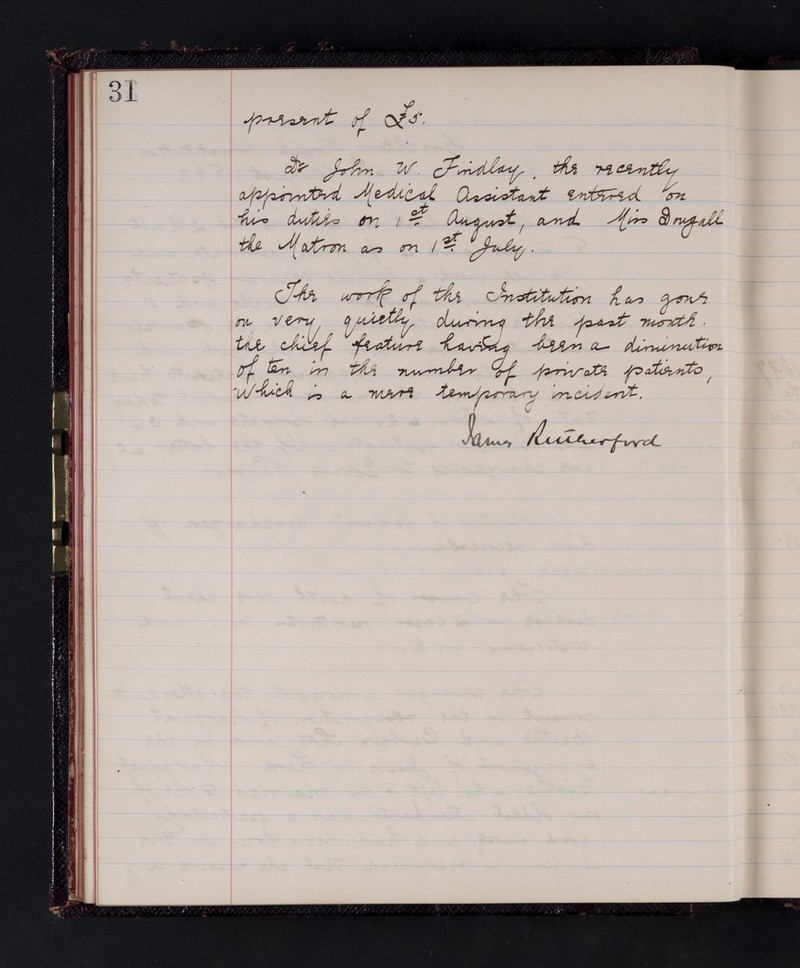 31
present of £5.
Dr John W. Findlay, the recently
appointed Medical Assistant entered on
his duties on 1st August, and Miss Dougall
the Matron as on 1st July.
The work of the Institution has gone
on very quietly during the past month.
the chief feature having been a diminution
of ten in the number of private patients,
which is a mere temporary incident.
James Rutherford